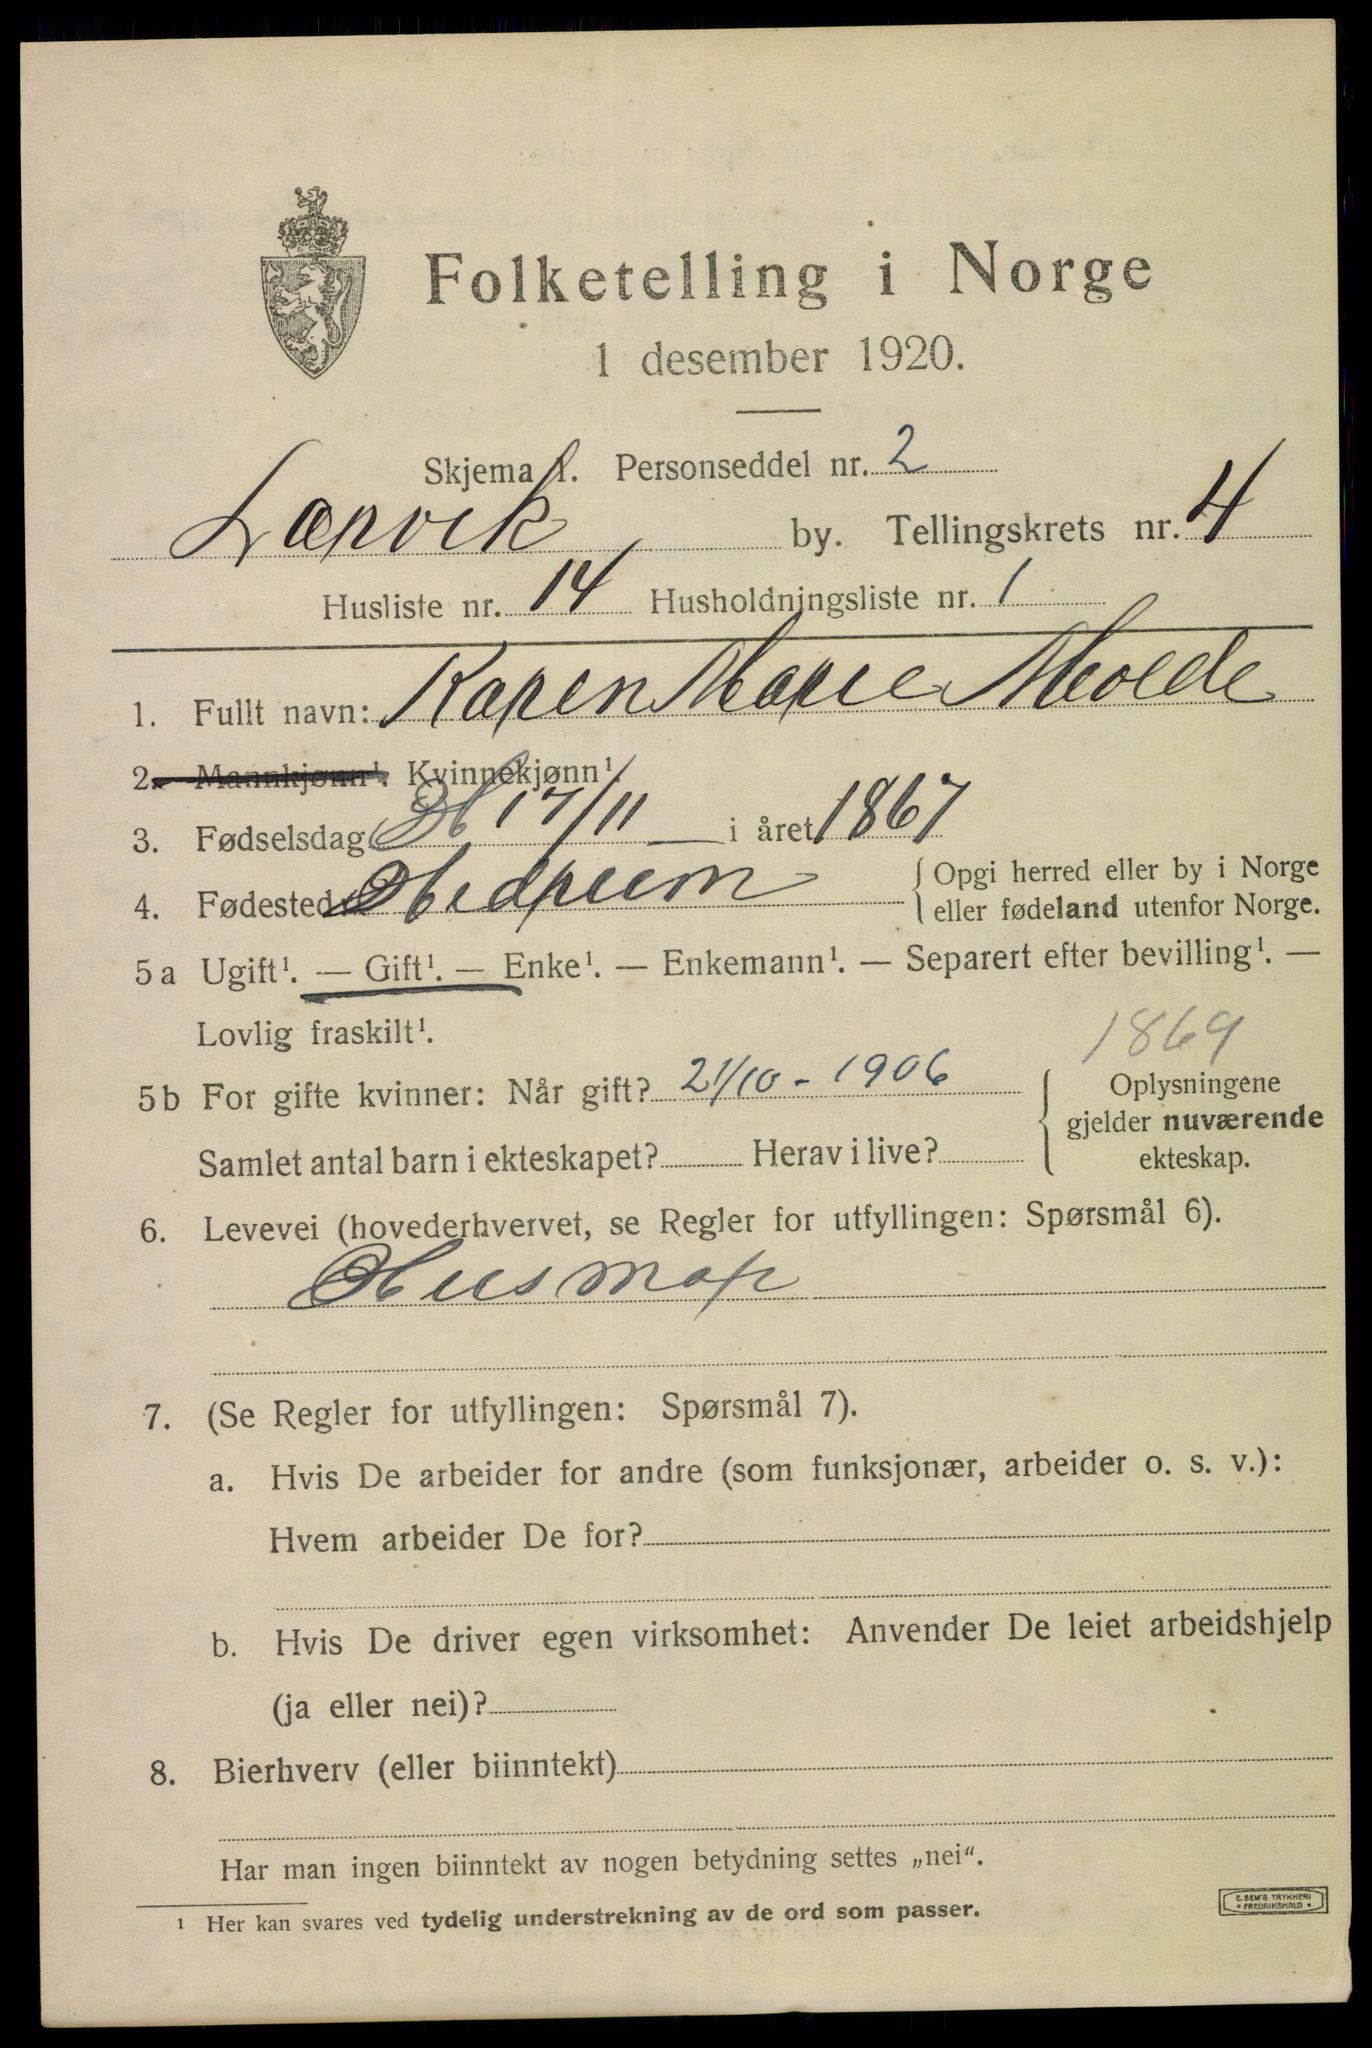 Folketelling i Norge
1 desember 1920.
Skjema 1. Personseddel nr. 2
Larvik by. Tellingskrets nr. 4
Husliste nr. 14 Husholdningsliste nr. 1
1. Fullt navn: Karen Marie Molde
2. Mannkjønn¹. Kvinnekjønn¹.
3. Fødselsdag 17/11 i året 1867
4. Fødested Hedrum { Opgi herred eller by i Norge
eller fødeland utenfor Norge.
5a Ugift¹. — Gift¹. — Enke¹. — Enkemann¹. — Separert efter bevilling¹. —
Lovlig fraskilt¹.
1869
5b For gifte kvinner: Når gift? 21/10 - 1906 { Oplysningene
gjelder nuværende
Samlet antal barn i ekteskapet? Herav i live?
ekteskap.
6. Levevei (hovederhvervet, se Regler for utfyllingen: Spørsmål 6).
Husmor
7. (Se Regler for utfyllingen: Spørsmål 7).
a. Hvis De arbeider for andre (som funksjonær, arbeider o. s. v.):
Hvem arbeider De for?
b. Hvis De driver egen virksomhet: Anvender De leiet arbeidshjelp
(ja eller nei)?
8. Bierhverv (eller biinntekt)
Har man ingen biinntekt av nogen betydning settes „nei“.
¹ Her kan svares ved tydelig understrekning av de ord som passer.
E. SEM'S TRYKKERI
FREDRIKSHALD